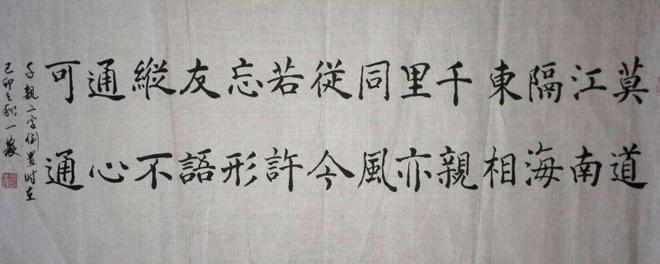 莫道
江南
隔海
東相
千親
里亦
同風
從今
若許
忘形
友語
縱不
通心
可通
千親二字倒置时在
己卯之秋一